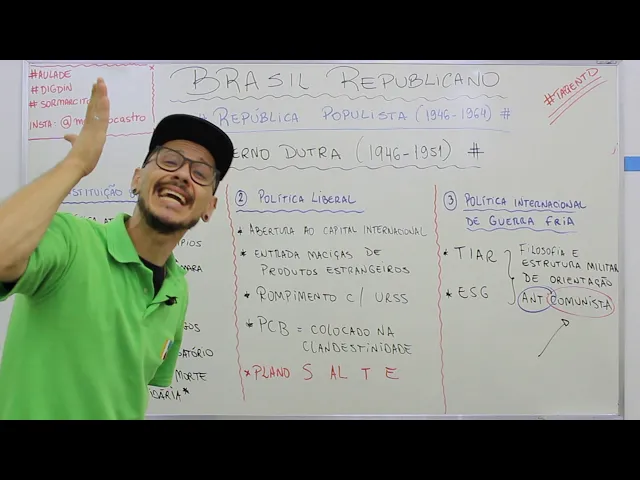 #AULADE
#DIGDIN
#SORMARCITO
INSTA: @m
OCASTRO
#TAPENTD
BRASIL REPUBLICANO
REPÚBLICA POPULISTA (1946-1964) #
ERNO DUTRA (1946-1951) #
STITUIÇÃO
ÍPIOS
MARA
GOS
ATÓRIO
MORTE
IDÁRIA*
② POLÍTICA LIBERAL
* ABERTURA AO CAPITAL INTERNACIONAL
* ENTRADA MACIÇAS DE
PRODUTOS ESTRANGEIROS
* ROMPIMENTO C/ URSS
* PCB = COLOCADO NA
CLANDESTINIDADE
* PLANO S AL T E
③ POLÍTICA INTERNACIONAL
DE GUERRA FRIA
* TIAR
* ESG
FILOSOFIA E
ESTRUTURA MILITAR
DE ORIENTAÇÃO
ANTI COMUNISTA